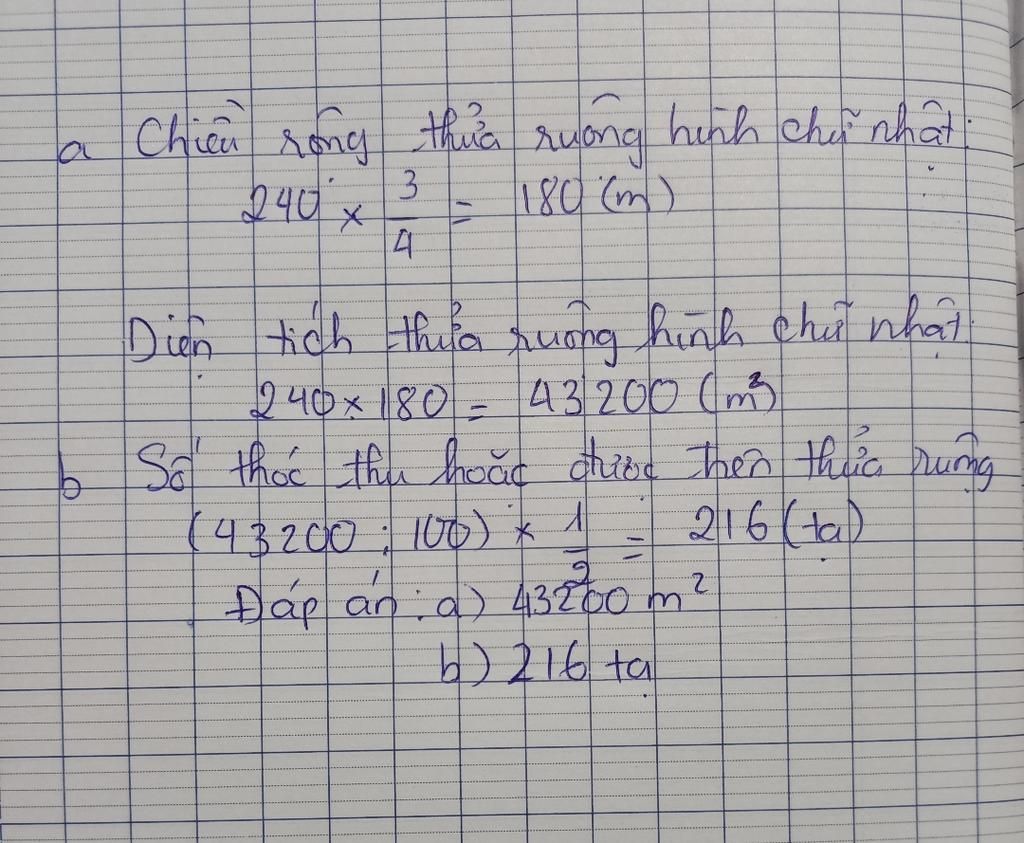 a Chiều rộng thửa ruộng hình chữ nhật:
240 × 3/4 = 180 (m)
Diện tích thửa ruộng hình chữ nhật:
240 × 180 = 43 200 (m²)
b Số thóc thu hoặc được trên thửa ruộng
(43 200 : 100) × 1/2 = 216 (tạ)
Đáp án: a) 43200 m²
b) 216 tạ